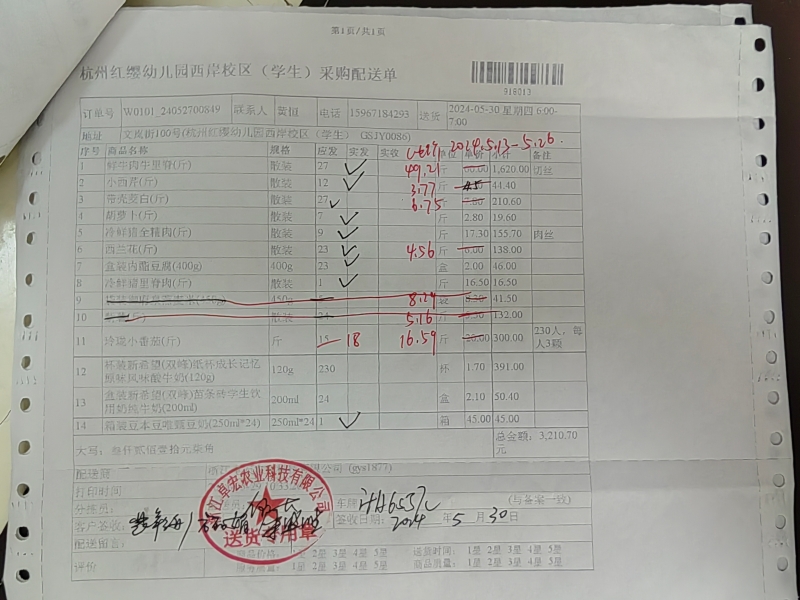 第1页/共1页
杭州红缨幼儿园西岸校区（学生）采购配送单
918013
订单号 W0101_24052700849 联系人 黄恒 电话 15967184293 送货 2024-05-30 星期四 6:00-7:00
地址 文皮街100号(杭州红缨幼儿园西岸校区（学生） GSJY0086)
2024.5.13-5.26.
序号 商品名称 规格 应发 实发 实收 单位 单价 小计 备注
1 鲜牛肉牛里脊(斤) 散装 27 49.21 斤 60.00 1,620.00 切丝
2 小西芹(斤) 散装 12 3.77 斤 44.40
3 带壳茭白(斤) 散装 27 6.75 斤 7.80 210.60
4 胡萝卜(斤) 散装 7 斤 2.80 19.60
5 冷鲜猪全精肉(斤) 散装 9 斤 17.30 155.70 肉丝
6 西兰花(斤) 散装 23 4.56 斤 6.00 138.00
7 盒装内酯豆腐(400g) 400g 23 盒 2.00 46.00
8 冷鲜猪里脊肉(斤) 散装 1 斤 16.50 16.50
9 450g 8.29 袋 8.30 41.50
10 散装 24 5.16 斤 5.50 132.00
11 冷珑小番茄(斤) 斤 15 18 16.59 斤 20.00 300.00 230人，每人3颗
12 杯装新希望(双峰)纸杯成长记忆原味风味酸牛奶(120g) 120g 230 杯 1.70 391.00
13 盒装新希望(双峰)苗条砖学生饮用奶纯牛奶(200ml) 200ml 24 盒 2.10 50.40
14 箱装豆本豆唯甄豆奶(250ml*24) 250ml*24 1 箱 45.00 45.00
大写：叁仟贰佰壹拾元柒角 总金额：3,210.70元
配送商 公司 (gys1877)
打印时间
分拣员： 车牌 (与备案一线)
客户签收： 签收日期： 2024 年 5 月 30 日
配送留言：
评价 商品价格： 1星 2星 3星 4星 5星 送货时间： 1星 2星 3星 4星 5星
服务质量： 1星 2星 3星 4星 5星 商品质量： 1星 2星 3星 4星 5星
浙江卓宏农业科技有限公司
送货专用章